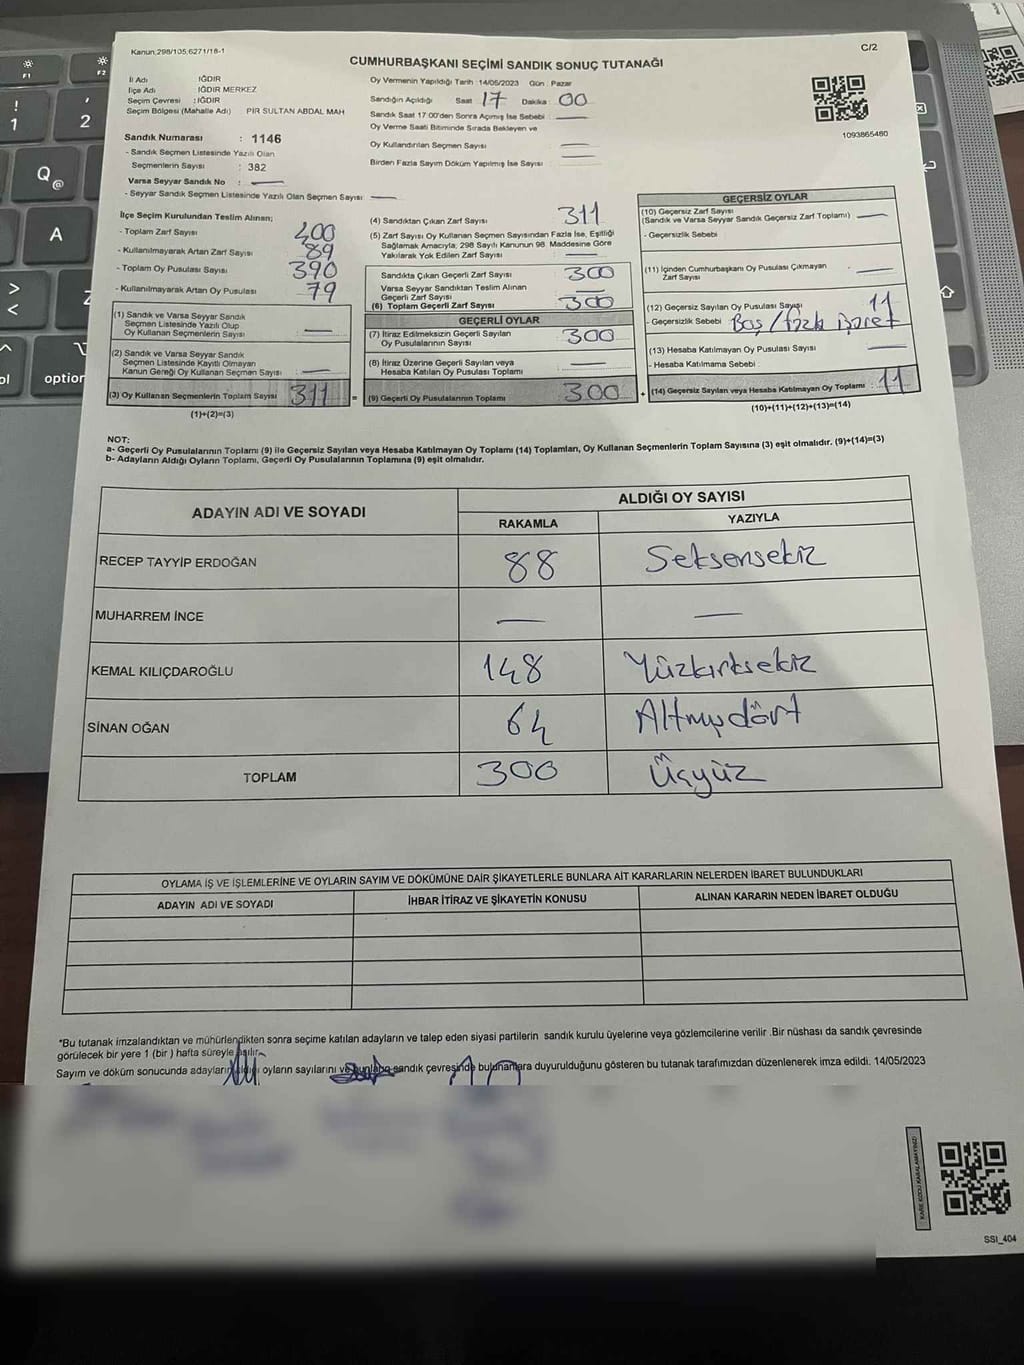 Kanun,298/105,6271/18-1
C/2
CUMHURBAŞKANI SEÇİMİ SANDIK SONUÇ TUTANAĞI
İl Adı IĞDIR
İlçe Adı IĞDIR MERKEZ
Seçim Çevresi : IĞDIR
Seçim Bölgesi (Mahalle Adı) PİR SULTAN ABDAL MAH
Sandık Numarası : 1146
- Sandık Seçmen Listesinde Yazılı Olan
Seçmenlerin Sayısı : 382
Varsa Seyyar Sandık No : —
- Seyyar Sandık Seçmen Listesinde Yazılı Olan Seçmen Sayısı —
Oy Vermenin Yapıldığı Tarih :14/05/2023 Gün : Pazar
Sandığın Açıldığı Saat 17 Dakika 00
Sandık Saat 17:00'den Sonra Açımış İse Sebebi : —
Oy Verme Saati Bitiminde Sırada Bekleyen ve
Oy Kullandırılan Seçmen Sayısı : —
Birden Fazla Sayım Döküm Yapılmış İse Sayısı : —
1093865460
İlçe Seçim Kurulundan Teslim Alınan;
- Toplam Zarf Sayısı : 400
- Kullanılmayarak Artan Zarf Sayısı : 89
- Toplam Oy Pusulası Sayısı : 390
- Kullanılmayarak Artan Oy Pusulası : 79
(1) Sandık ve Varsa Seyyar Sandık
Seçmen Listesinde Yazılı Olup
Oy Kullanan Seçmenlerin Sayısı : —
(2) Sandık ve Varsa Seyyar Sandık
Seçmen Listesinde Kayıtlı Olmayan
Kanun Gereği Oy Kullanan Seçmen Sayısı : —
(3) Oy Kullanan Seçmenlerin Toplam Sayısı : 311
(1)+(2)=(3)
(4) Sandıktan Çıkan Zarf Sayısı : 311
(5) Zarf Sayısı Oy Kullanan Seçmen Sayısından Fazla İse, Eşitliği
Sağlamak Amacıyla; 298 Sayılı Kanunun 98. Maddesine Göre
Yakılarak Yok Edilen Zarf Sayısı : —
Sandıkta Çıkan Geçerli Zarf Sayısı : 300
Varsa Seyyar Sandıktan Teslim Alınan
Geçerli Zarf Sayısı : —
(6) Toplam Geçerli Zarf Sayısı : 300
GEÇERLİ OYLAR
(7) İtiraz Edilmeksizin Geçerli Sayılan
Oy Pusulalarının Sayısı : 300
(8) İtiraz Üzerine Geçerli Sayılan veya
Hesaba Katılan Oy Pusulası Toplamı : —
= (9) Geçerli Oy Pusulalarının Toplamı : 300 +
GEÇERSİZ OYLAR
(10) Geçersiz Zarf Sayısı
(Sandık ve Varsa Seyyar Sandık Geçersiz Zarf Toplamı) : —
- Geçersizlik Sebebi :
(11) İçinden Cumhurbaşkanı Oy Pusulası Çıkmayan
Zarf Sayısı : —
(12) Geçersiz Sayılan Oy Pusulası Sayısı : 11
- Geçersizlik Sebebi : Boş / fazla işaret
(13) Hesaba Katılmayan Oy Pusulası Sayısı : —
- Hesaba Katılmama Sebebi :
(14) Geçersiz Sayılan veya Hesaba Katılmayan Oy Toplamı : 11
(10)+(11)+(12)+(13)=(14)
NOT:
a- Geçerli Oy Pusulalarının Toplamı (9) ile Geçersiz Sayılan veya Hesaba Katılmayan Oy Toplamı (14) Toplamları, Oy Kullanan Seçmenlerin Toplam Sayısına (3) eşit olmalıdır. (9)+(14)=(3)
b- Adayların Aldığı Oyların Toplamı, Geçerli Oy Pusulalarının Toplamına (9) eşit olmalıdır.
ADAYIN ADI VE SOYADI
ALDIĞI OY SAYISI
RAKAMLA YAZIYLA
RECEP TAYYİP ERDOĞAN 88 Seksensekiz
MUHARREM İNCE — —
KEMAL KILIÇDAROĞLU 148 Yüzkırksekiz
SİNAN OĞAN 64 Altmışdört
TOPLAM 300 Üçyüz
OYLAMA İŞ VE İŞLEMLERİNE VE OYLARIN SAYIM VE DÖKÜMÜNE DAİR ŞİKAYETLERLE BUNLARA AİT KARARLARIN NELERDEN İBARET BULUNDUKLARI
ADAYIN ADI VE SOYADI İHBAR İTİRAZ VE ŞİKAYETİN KONUSU ALINAN KARARIN NEDEN İBARET OLDUĞU
*Bu tutanak imzalandıktan ve mühürlendikten sonra seçime katılan adayların ve talep eden siyasi partilerin sandık kurulu üyelerine veya gözlemcilerine verilir .Bir nüshası da sandık çevresinde
görülecek bir yere 1 (bir ) hafta süreyle asılır.
Sayım ve döküm sonucunda adayların aldığı oyların sayılarını ve bunlara sandık çevresinde bulunanlara duyurulduğunu gösteren bu tutanak tarafımızdan düzenlenerek imza edildi. 14/05/2023
KARE KODU KARALAMAYINIZ!
SSI_404
F1
F2
!
1
'
2
Q
@
A
>
<
Z
option